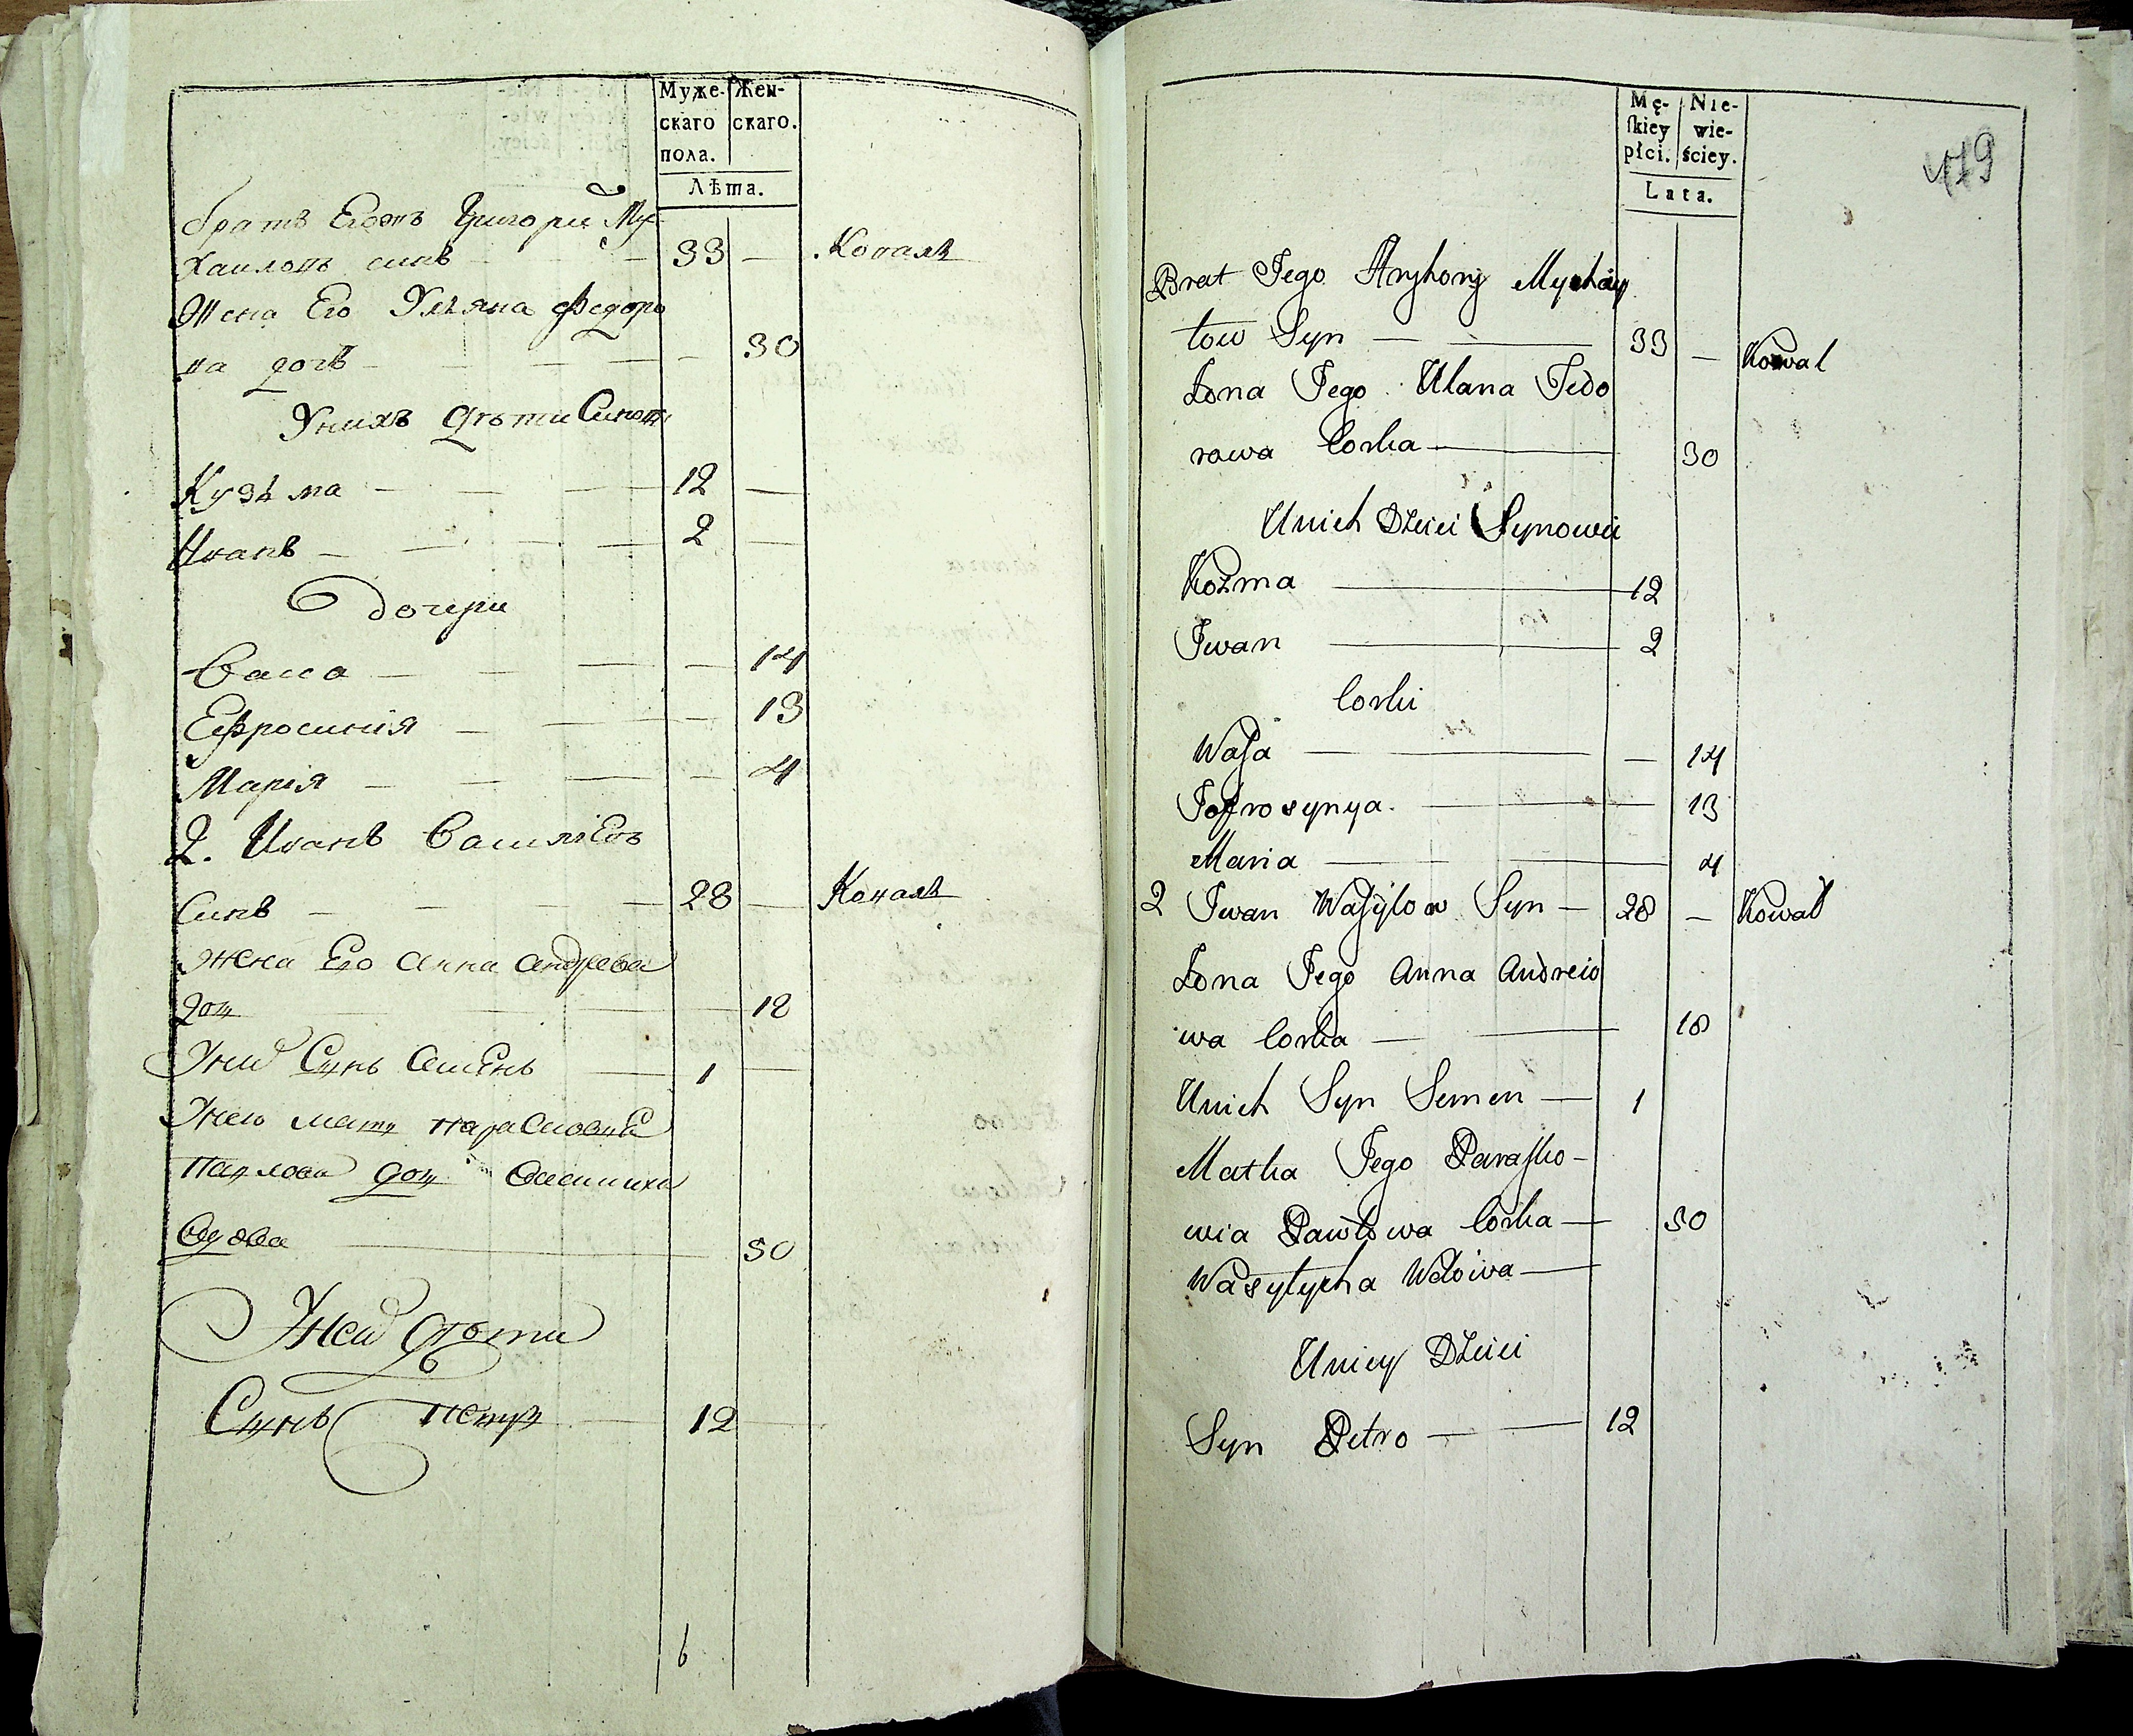 Муже-
скаго
пола.
Жен-
скаго.
Лѣта.
братъ Егожъ Григори Му-
хаиловъ синъ — 33 — Коваль
Жена Его Уляна Федоро
ва дочь — 30
Унихъ Дѣти Синови
Кузьма — 12 —
Иванъ — 2 —
Дочери
Васса — 14
Ефросинія — 13
Марія — 4
2. Иванъ Васильевъ
Синъ — 28 — Коваль
Жена Его Анна Андреева
доч — 18
Уних Сынъ Семенъ — 1 —
Унею мать Парасковия
Павлова доч Василиха
Вдова — 50
Уней Дѣти
Сынъ Петръ — 12 —
6
Mę-
ſkiey
płci.
Nie-
wie-
ściey.
Lata.
179
Brat Jego Hryhory Mychay
łow Syn — 33 — Kowal
Żona Jego Ulana Fedo
rowa Corka — 30
Unich Dzieci Synowie
Kozma — 12
Iwan — 2
Corki
Waſa — 14
Jefrosynya — 13
Maria — 4
2 Iwan Waſylow Syn — 28 — Kowal
Żona Jego Anna Andreio
wa Corka — 18
Unich Syn Semen — 1
Matka Jego Paraſko-
wia Pawłowa Corka — 50
Wasylycha Wdowa —
Uniey Dzieci
Syn Petro — 12